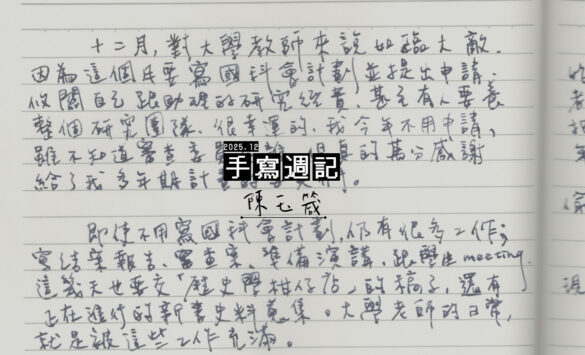 十二月，對大學教師來說如臨大敵。
因為這個月要寫國科會計劃並提出申請。
攸關自己跟助理的研究經費，甚至有人要養
整個研究團隊。很幸運的，我今年不用申請，
雖不知道審查委員 真的萬分感謝
給了我多年期計畫的
2025.12
手寫週記
陳玉箴
即使不用寫國科會計劃，仍有很多工作；
寫結案報告、審查案、準備演講、跟學生meeting。
這幾天也要交「歷史學柑仔店」的稿子，還有
正在進行的新書史料蒐集。大學老師的日常，
就是被這些工作充滿。